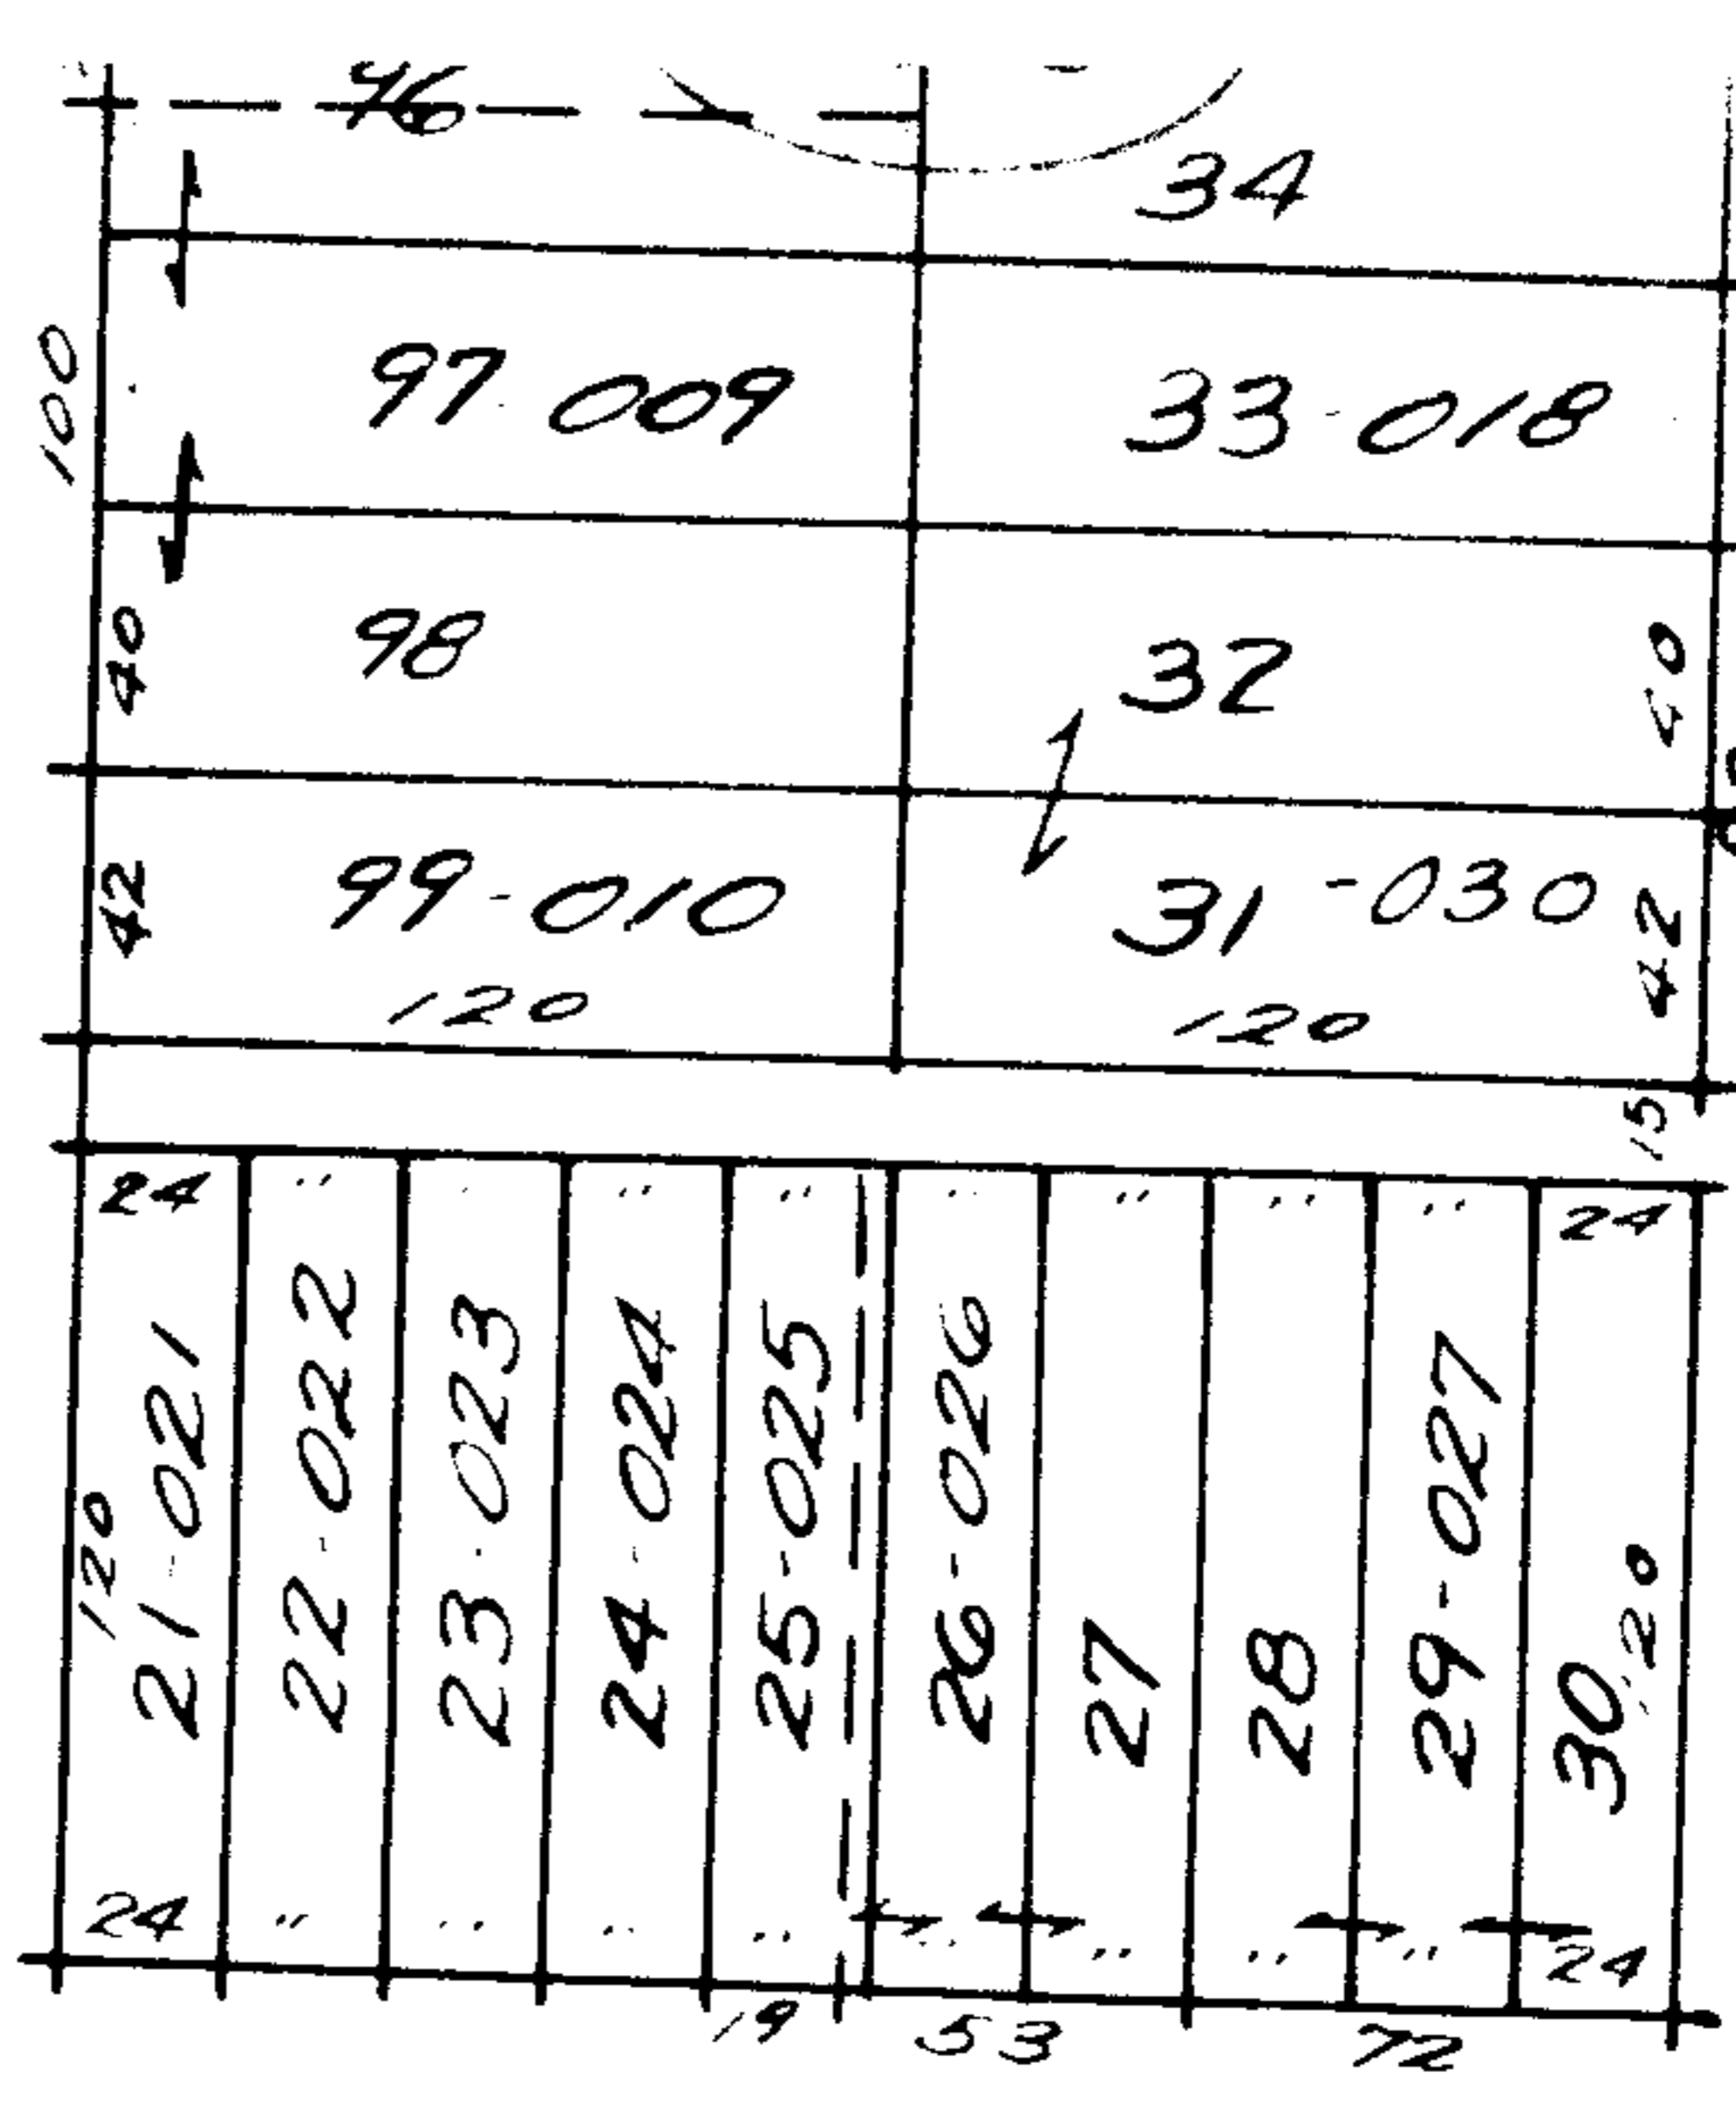 46
34
100
97 009
33-018
40
98
32
40
42
99-010
31-030
42
120
120
15
24 " " " " " " " 24
120
21-021
22-022
23-023
24-024
25-025
26-026
27
28
29-027
30
120
24 " " " " " " " " 24
19
53
72